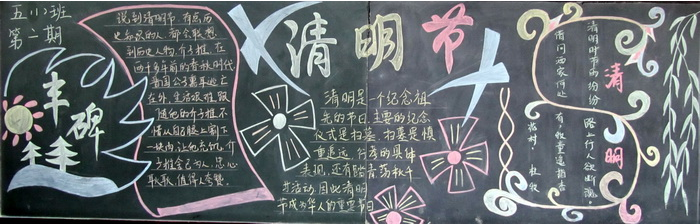 五(2)班
第二期
丰碑
说到清明节,有点历
史知识的人,都会联想
到历史人物介子推。在
两千多年前的春秋时代
晋国公子重耳逃亡
在外,生活艰难跟
随他的介子推不
惜从自己腿上割下
一块肉让他充饥。介
子推舍己为人、忠心
耿耿,值得人夸赞。
清明节
清明是一个纪念祖
先的节日,主要的纪念
仪式是扫墓,扫墓是慎
重追远、行孝的具体
表现,还有踏青荡秋千
等活动,因此清明
节成为华人的重要节日
清明
清明时节雨纷纷
路上行人欲断魂。
借问酒家何处
有牧童遥指杏
花村。
杜牧